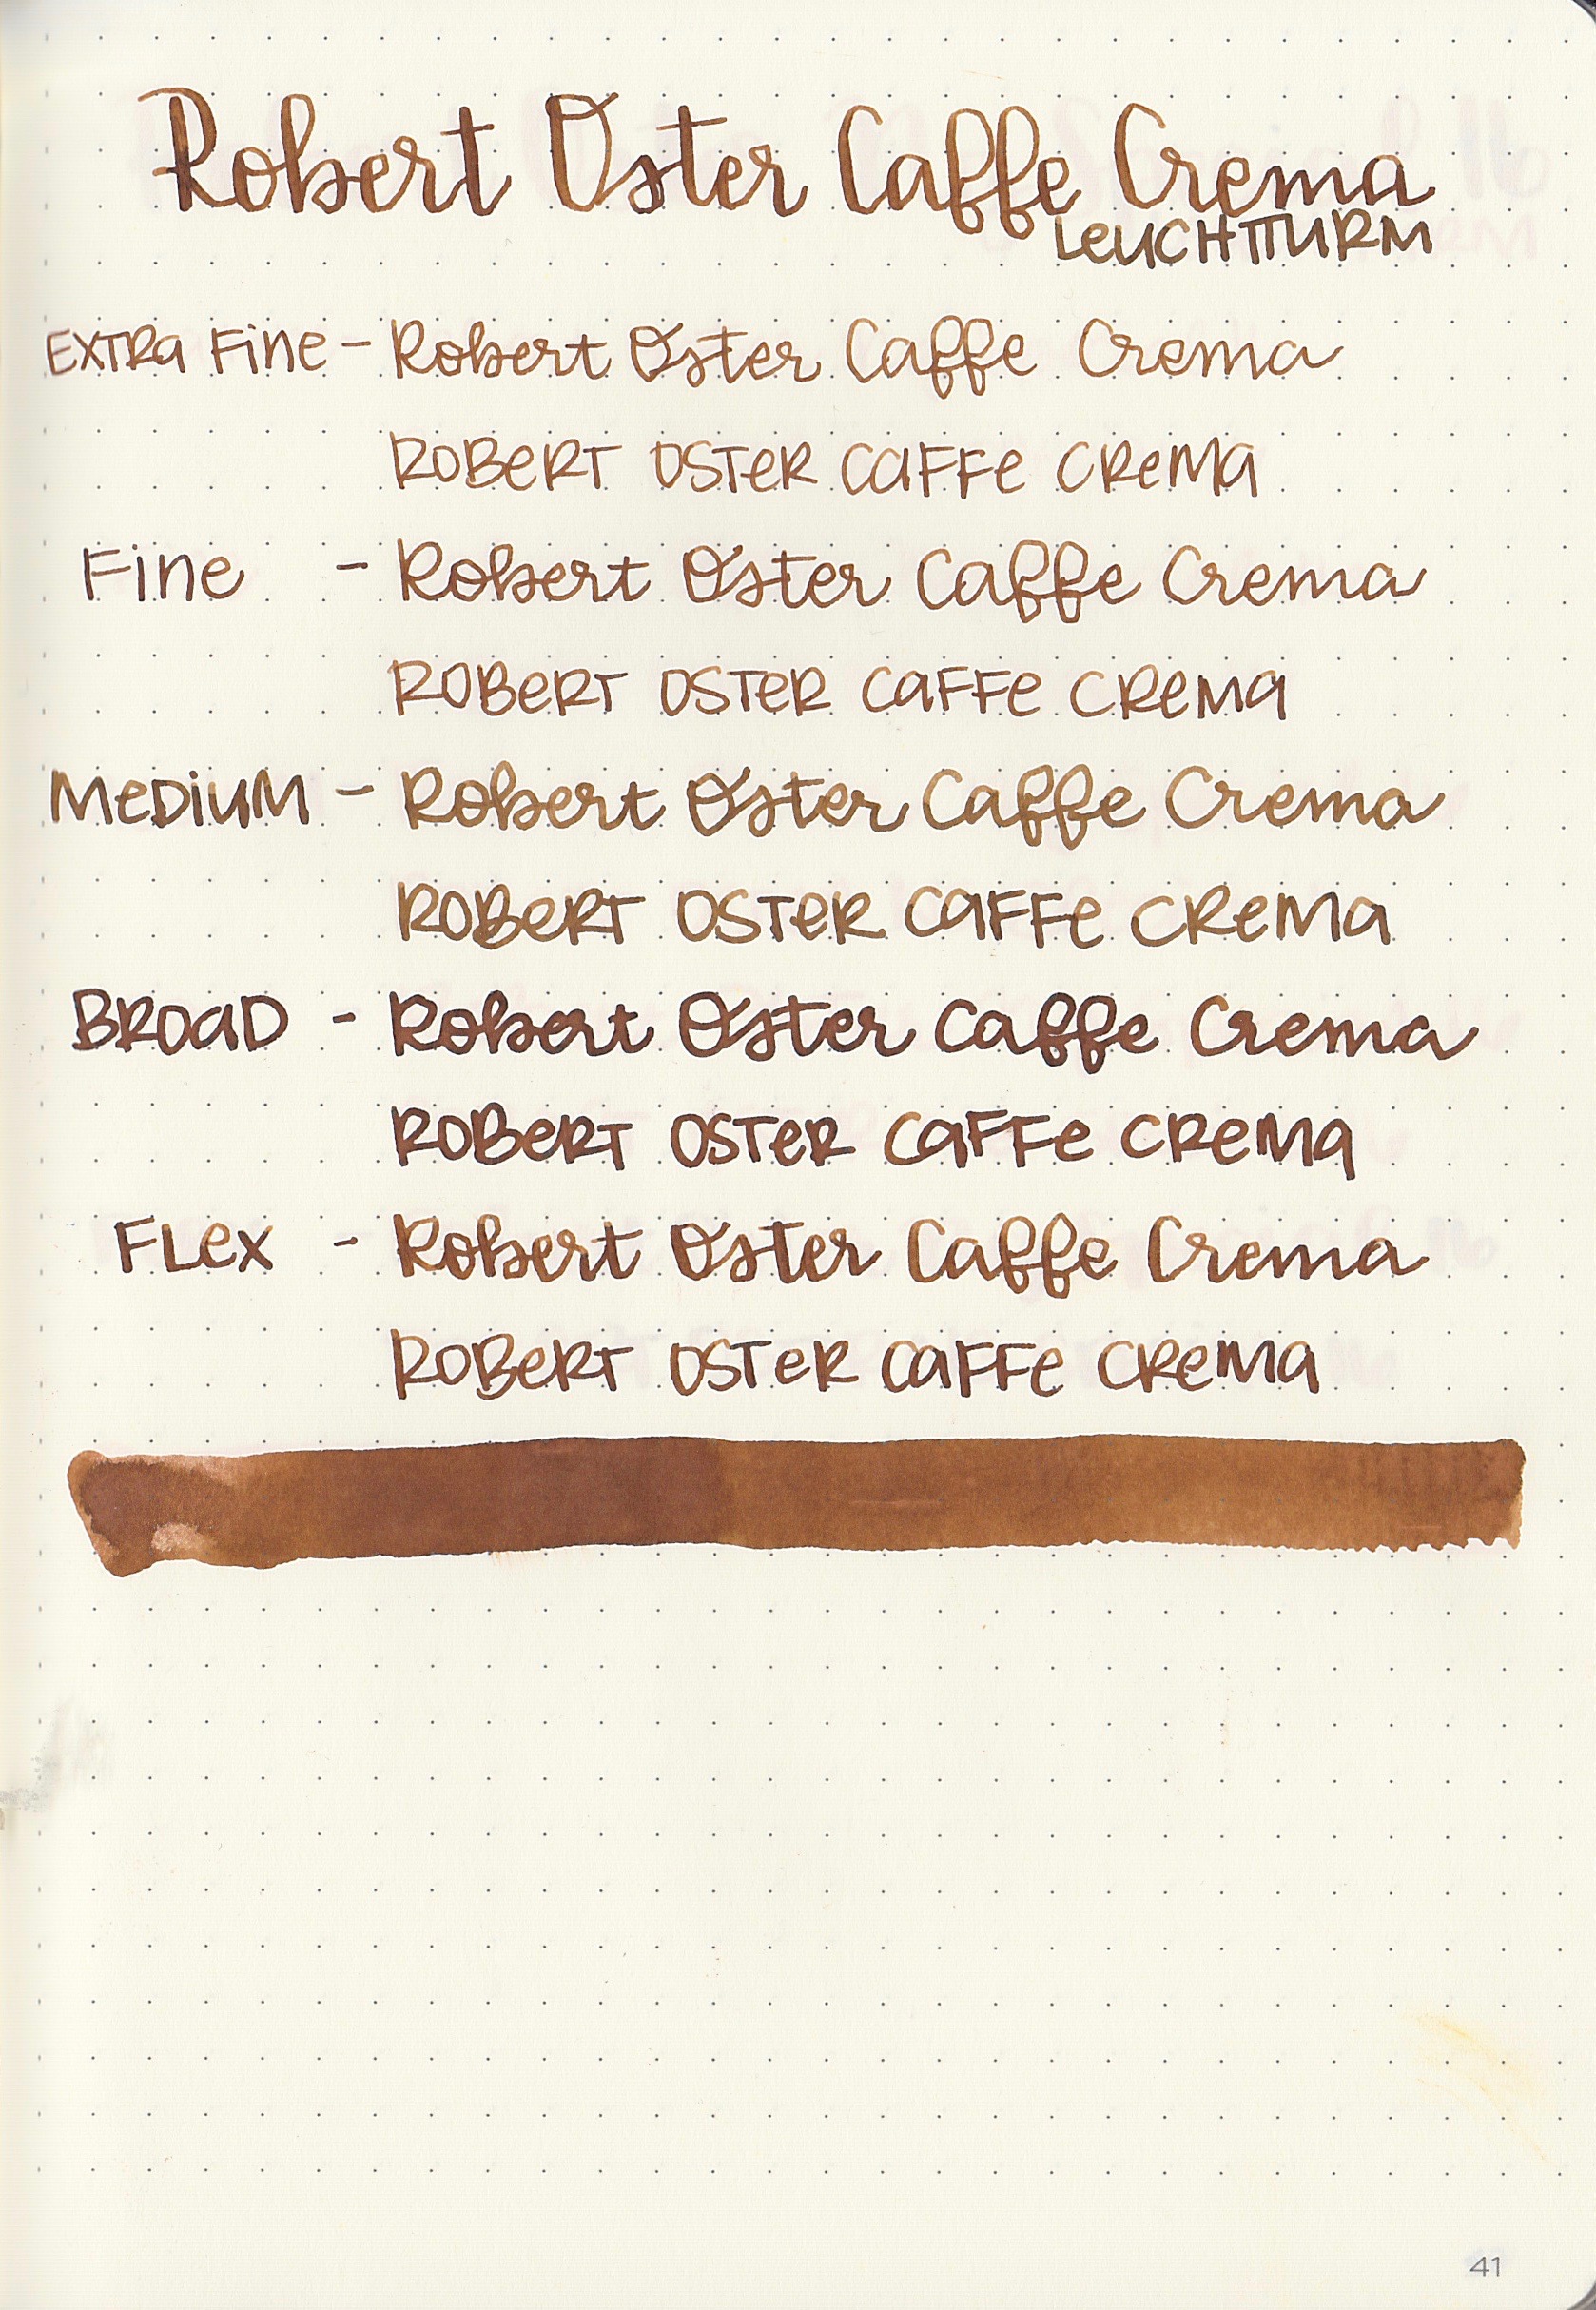 Robert Oster Caffe Crema
LEUCHTTURM
EXTRA FINE - Robert Oster Caffe Crema
ROBERT OSTER CAFFE CREMA
FINE - Robert Oster Caffe Crema
ROBERT OSTER CAFFE CREMA
MEDIUM - Robert Oster Caffe Crema
ROBERT OSTER CAFFE CREMA
BROAD - Robert Oster Caffe Crema
ROBERT OSTER CAFFE CREMA
FLEX - Robert Oster Caffe Crema
ROBERT OSTER CAFFE CREMA
41